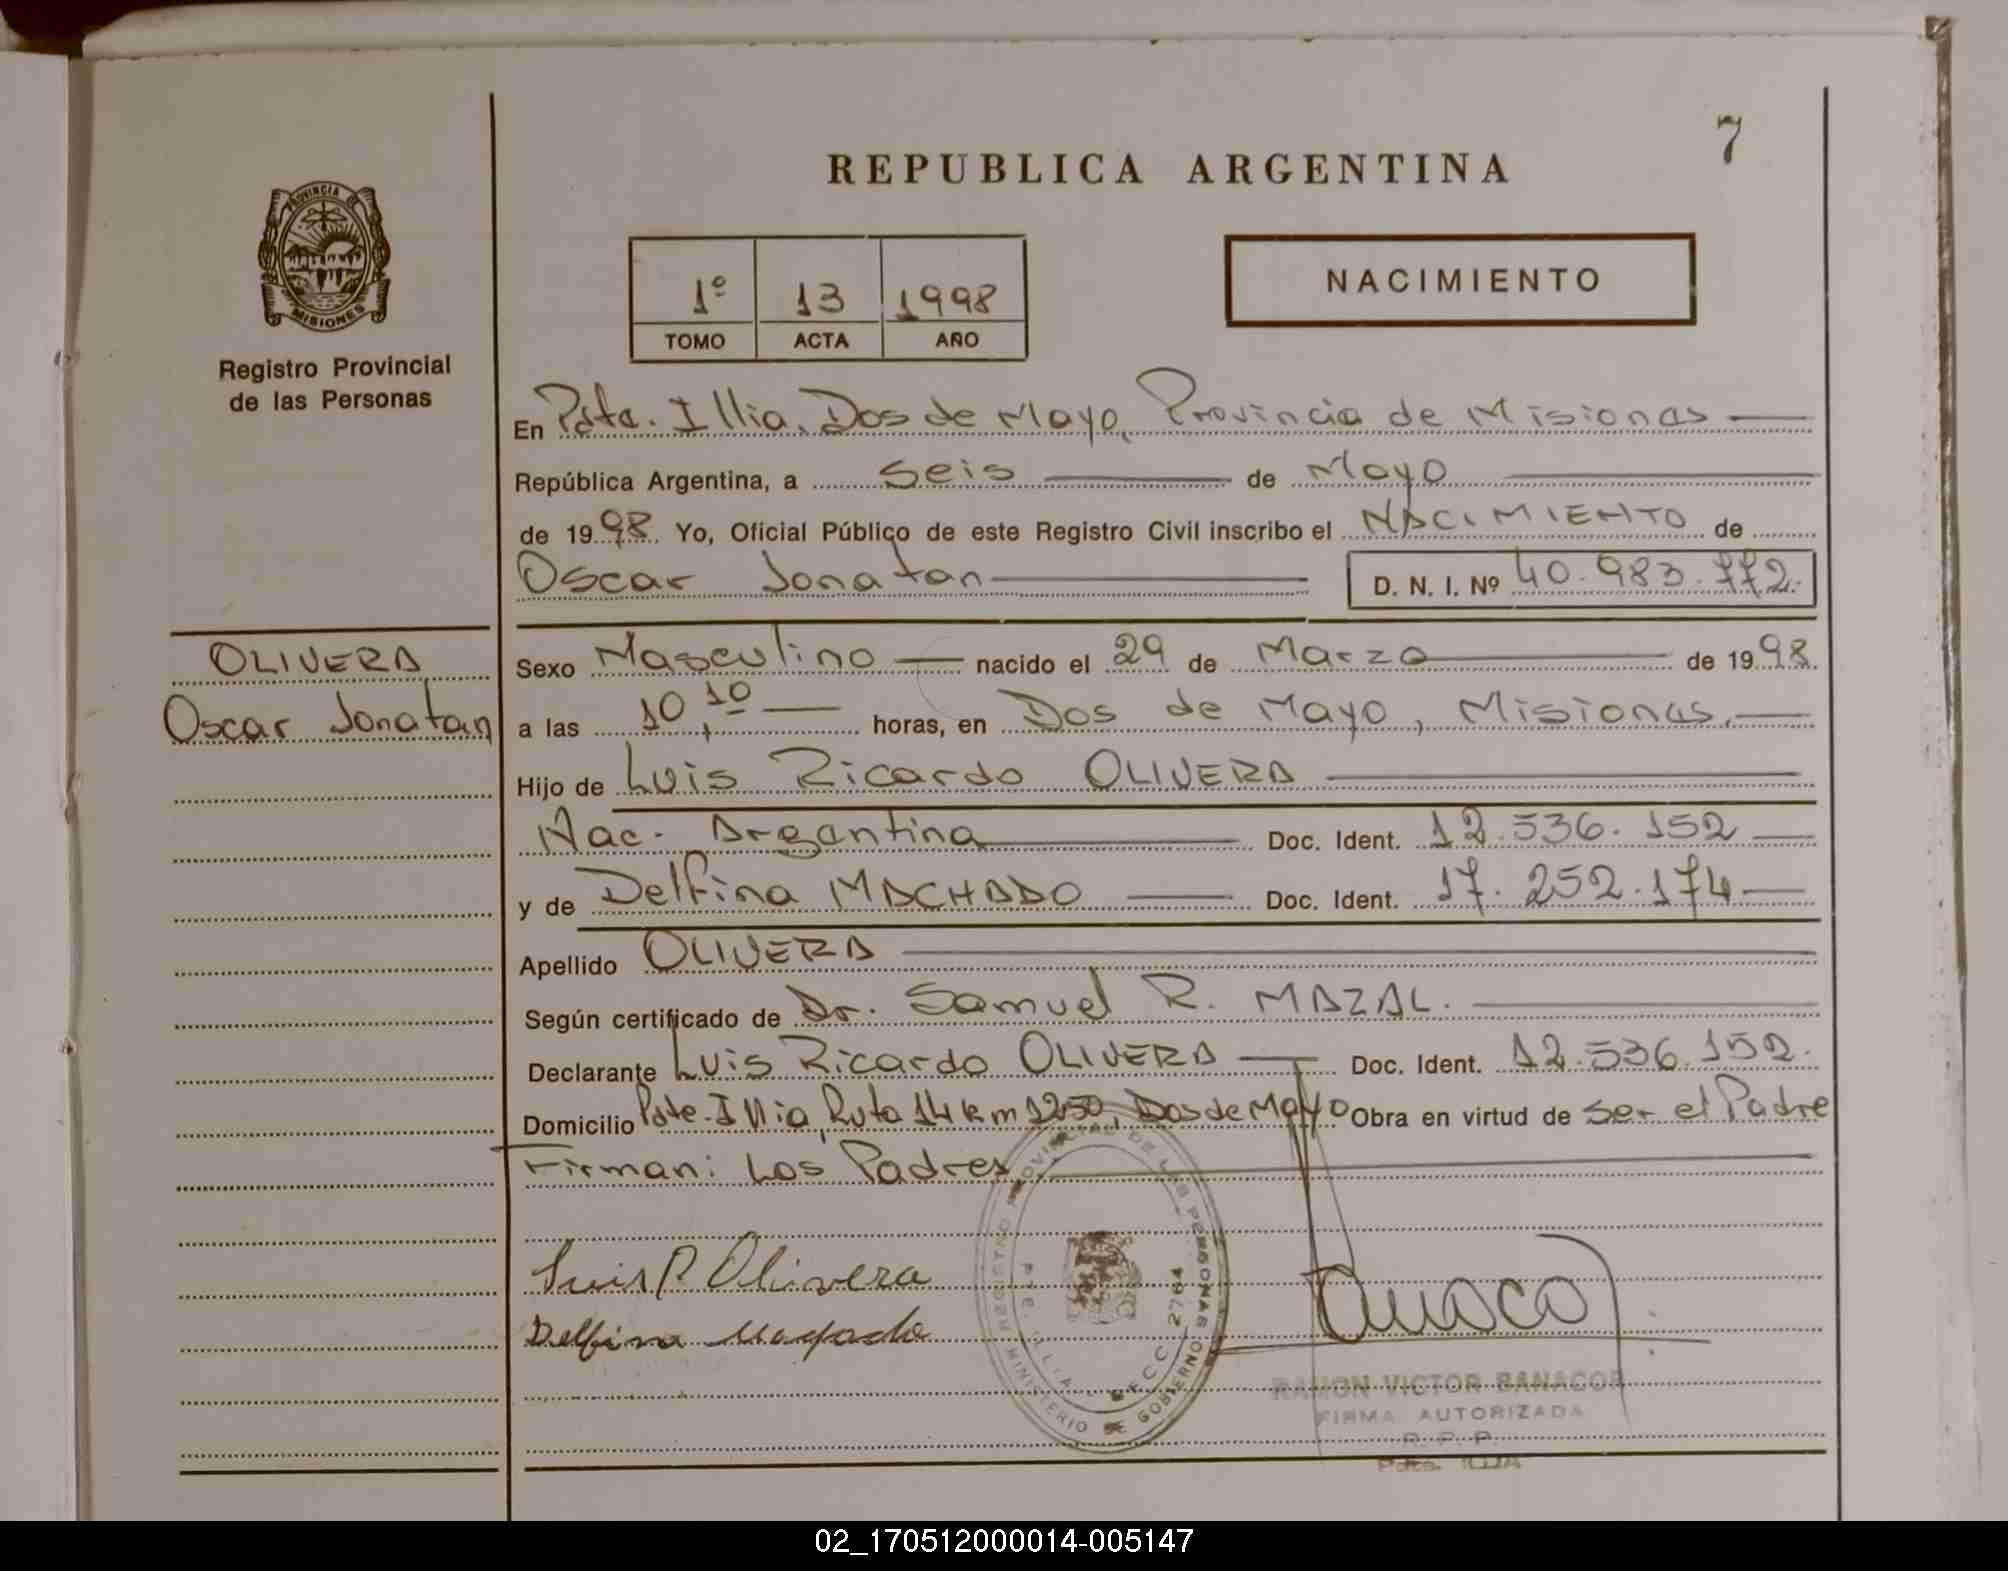 7
REPUBLICA ARGENTINA
PROVINCIA DE
MISIONES
Registro Provincial
de las Personas
1º 13 1998
TOMO ACTA AÑO
NACIMIENTO
En Pdte. Illia, Dos de Mayo, Provincia de Misiones
República Argentina, a seis de Mayo
de 1998 Yo, Oficial Público de este Registro Civil inscribo el NACIMIENTO de
Oscar Jonatan D. N. I. Nº 40.983.772.
OLIVERA
Oscar Jonatan
Sexo Masculino nacido el 29 de Marzo de 1998.
a las 10,10 horas, en Dos de Mayo, Misiones.
Hijo de Luis Ricardo OLIVERA
Nac. Argentina Doc. Ident. 12.536.152
y de Delfina MACHADO Doc. Ident. 17.252.174
Apellido OLIVERA
Según certificado de Dr. Samuel R. MAZAL.
Declarante Luis Ricardo OLIVERA Doc. Ident. 12.536.152.
Domicilio Pdte. Illia, Ruta 14 km 1250, Dos de Mayo Obra en virtud de ser el Padre
Firman: Los Padres
Luis R. Olivera
Delfina
REGISTRO PROVINCIAL DE LAS PERSONAS
MINISTERIO DE GOBIERNO
PTE. ILLIA 2764
RAMON VICTOR BANACOR
FIRMA AUTORIZADA
R. P. P.
Pdte. Illia
02_170512000014-005147